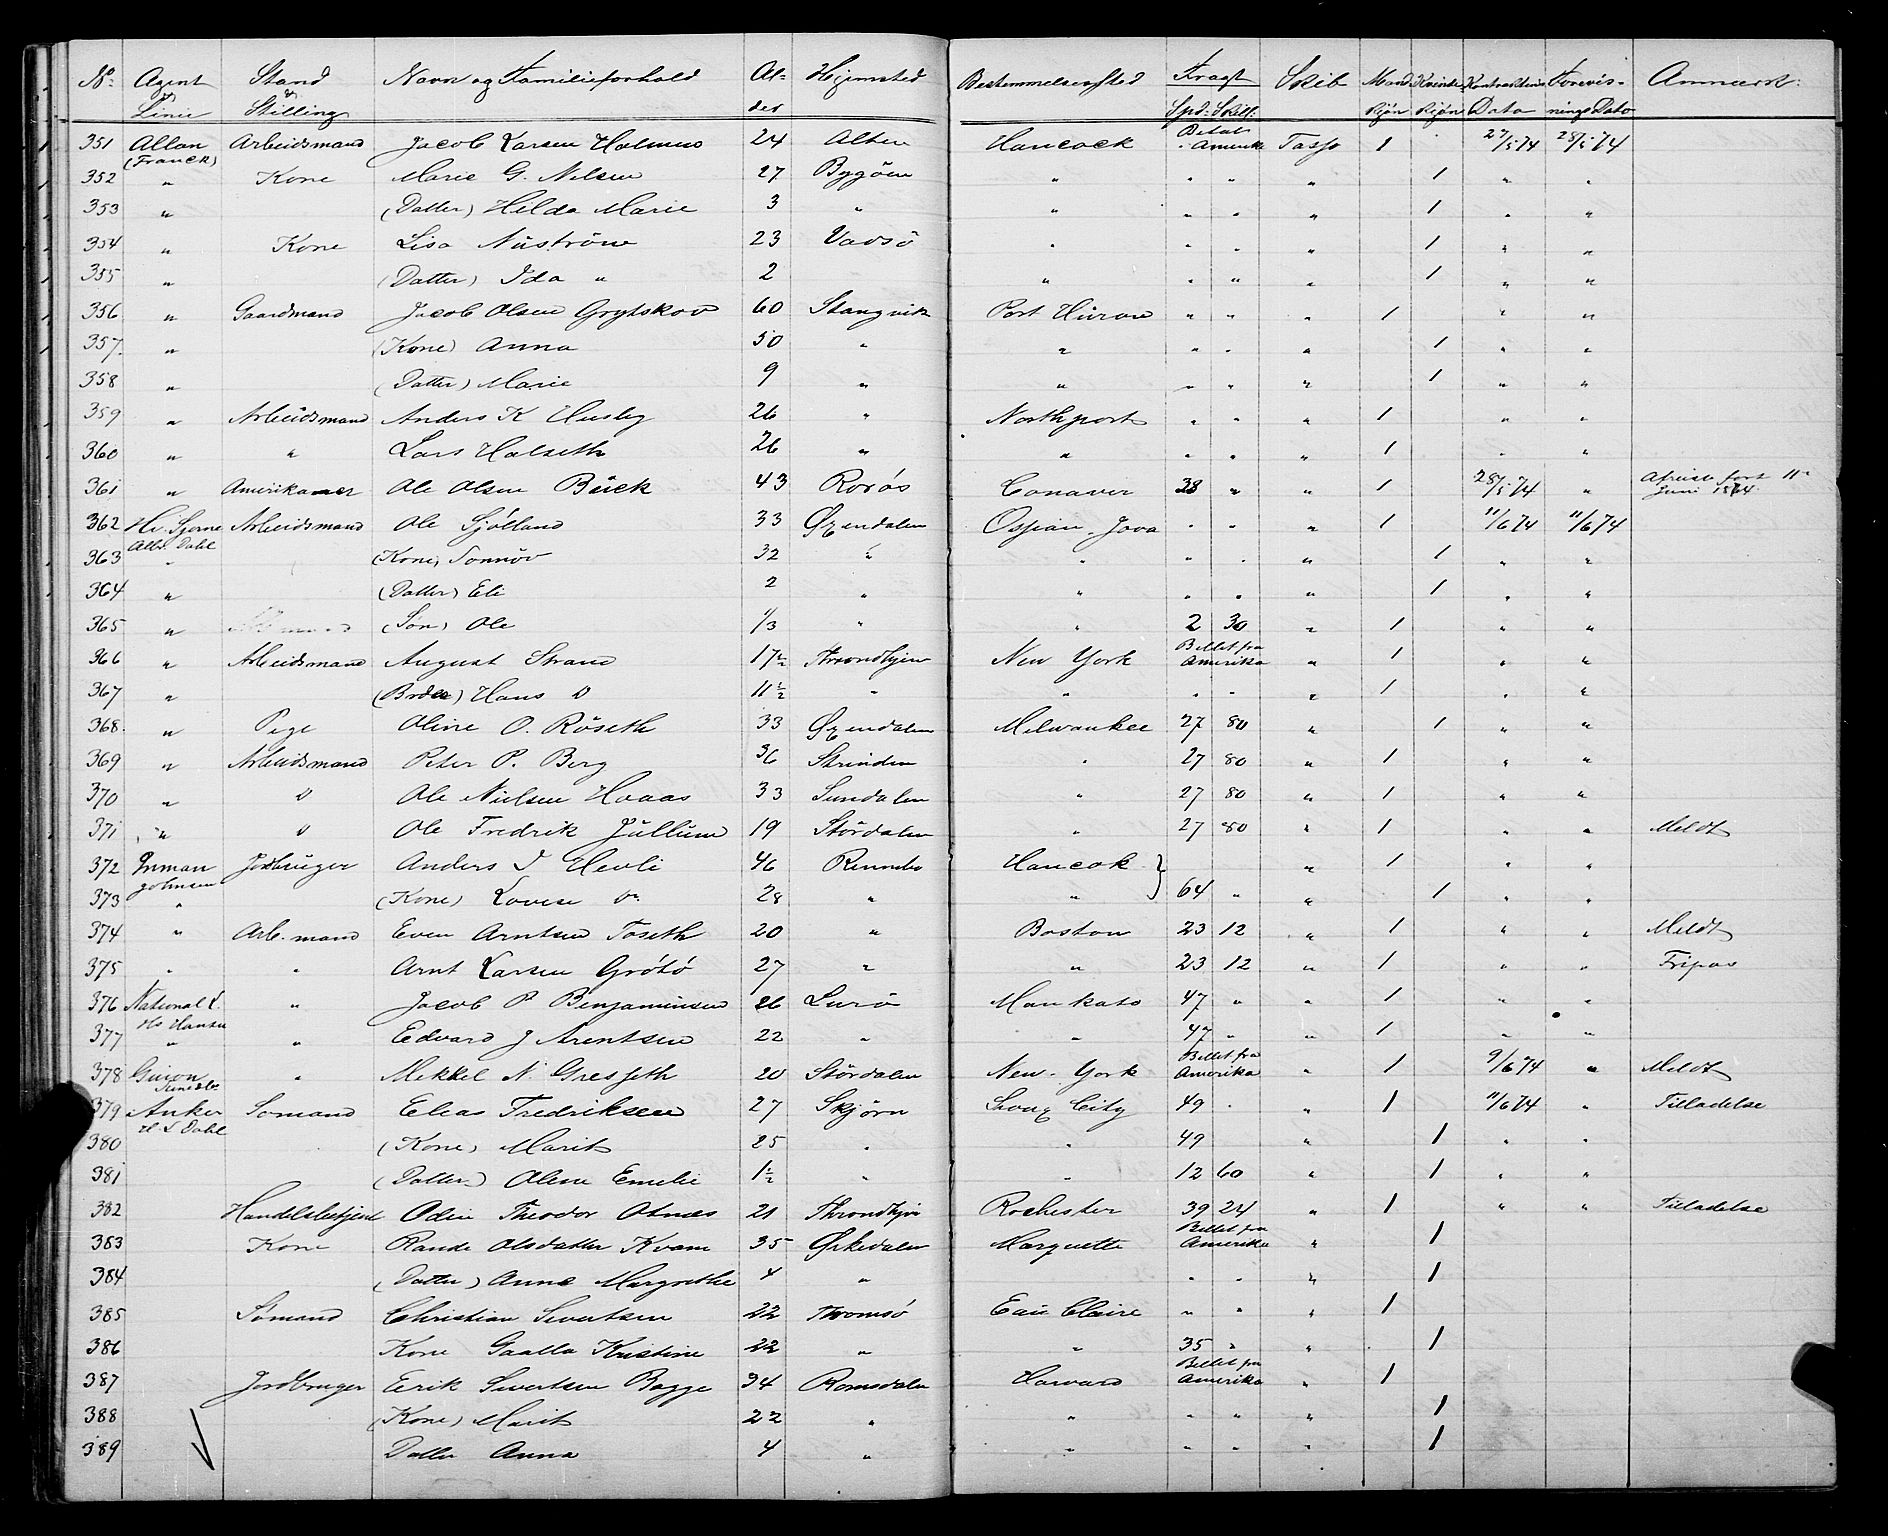 No. Agent & Linie Stand & Stilling Navn og Familieforhold Alder Hjemsted Bestemmelsessted Fragt Spd: Skill: Skib Mandkjøn Kvindekjøn Kontraktens Dato Forevisnings Dato Anmærk:
351 Allan (Franck) Arbeidsmand Jacob Larsen Holmens 24 Alten Hancock Betal. i Amerika Tasso 1 27/5 74 28/5 74
352 " Kone Marie G. Nilsen 27 Bygöen " " " " 1 " "
353 " (Datter) Hilda Marie 3 " " " " " 1 " "
354 " Kone Lisa Nüström 23 Vadsö " " " " 1 " "
355 " (Datter) Ida " 2 " " " " 1 " "
356 " Gaardmand Jacob Olsen Grytskov 60 Stangvik Port Huron " " " 1 " "
357 " (Kone) Anna 50 " " " " " 1 " "
358 " (Datter) Marie 9 " " " " " 1 " "
359 " Arbeidsmand Anders K Husby 26 " Northport " " " 1 " "
360 " " Lars Halseth 26 " " " " " 1 " "
361 " Amerikaner Ole Olsen Bäck 43 Rorøs Conover 38 " " 1 28/5 74 " Afreist fort 11te Juni 1874.
362 Hv. Sterne Albr. Dahl Arbeidsmand Ole Sjölland 33 Øxendalen Ossian Iova " " " 1 11/6 74 11/6 74
363 " (Kone) Sonnöv 32 " " " " " 1 " "
364 " (Datter) Eli 2 " " " " " 1 " "
365 " (Søn) Ole 1/3 " " 2 30 " 1 " "
366 " Arbeidsmand August Strand 17½ Throndhjem New York Billet fra Amerika " 1 " "
367 " (Broder) Hans D 11½ " " " " " 1 " "
368 " Pige Oline O. Röseth 33 Øxendalen Milwaukee 27 80 " 1 " "
369 " Arbeidsmand Peter P. Berg 36 Strinden " 27 80 " 1 " "
370 " D Ole Nielsen Hoaas 33 Sundalen " 27 80 " 1 " "
371 " D Ole Fredrik Jullum 19 Stördalen " 27 80 " 1 " " Meldt
372 Inman Johnsen Jordbruger Anders J Hevli 46 Rennebo Hancok } " 1 " "
373 " (Kone) Lovise Do 28 " " 64 " " 1 " "
374 " Arb. mand Even Arntsen Toseth 20 " Boston 23 12 " 1 " " Meldt
375 " " Arnt Larsen Grötö 27 " " 23 12 " 1 " " Fripas
376 National L. Hs Hansen " Jacob P Benjaminsen 26 Lurö Mankato 47 " " 1 " "
377 " " Edvard J Arentsen 22 " " 47 " " 1 " "
378 Guion " Mikkel N. 20 Stördalen New-York Billet fra Amerika " 1 9/6 74 " Meldt
379 Anker H. L Dahl Sömand Elias Fredriksen 27 Skjörn Soux City 49 " " 1 11/6 74 " Tilladelse
380 (Kone) Marit 25 " " 49 " 1 " "
381 (Datter) Oline Emelie 1½ " " 12 60 " 1 " "
382 Handelsbetjent Odin Theodor Otnæs 21 Throndhjem Rochester 39 24 " 1 " " Tilladelse
383 Kone Rande Olsdatter Kvam 35 Ørkedalen Marquette Billet fra Amerika " 1
384 (Datter) Anne Margrethe 4 " " " " 1
385 Sømand Christian Sivertsen 22 Thromsö Eau Claire " " " 1
386 Kone Gaalla Kristine 22 " " 35 " " 1
387 Jordbruger Erik Sivertsen Bogge 34 Romsdalen Harvard Billet fra Amerika " 1
388 (Kone) Marit 22 " " " " " 1
389 Datter Anna 4 " " " " " 1